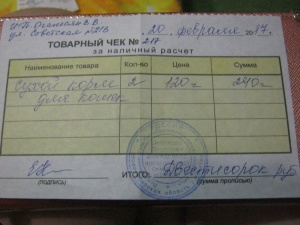 И.П. Оганесян В.В.
ул. Советская №21Б
20 февраля 2017г.
ТОВАРНЫЙ ЧЕК № 217
за наличный расчет
Наименование товара Кол-во Цена Сумма
Сухой корм 2 120= 240=
для кошек
ИТОГО: Двести сорок руб
(подпись) (сумма прописью)